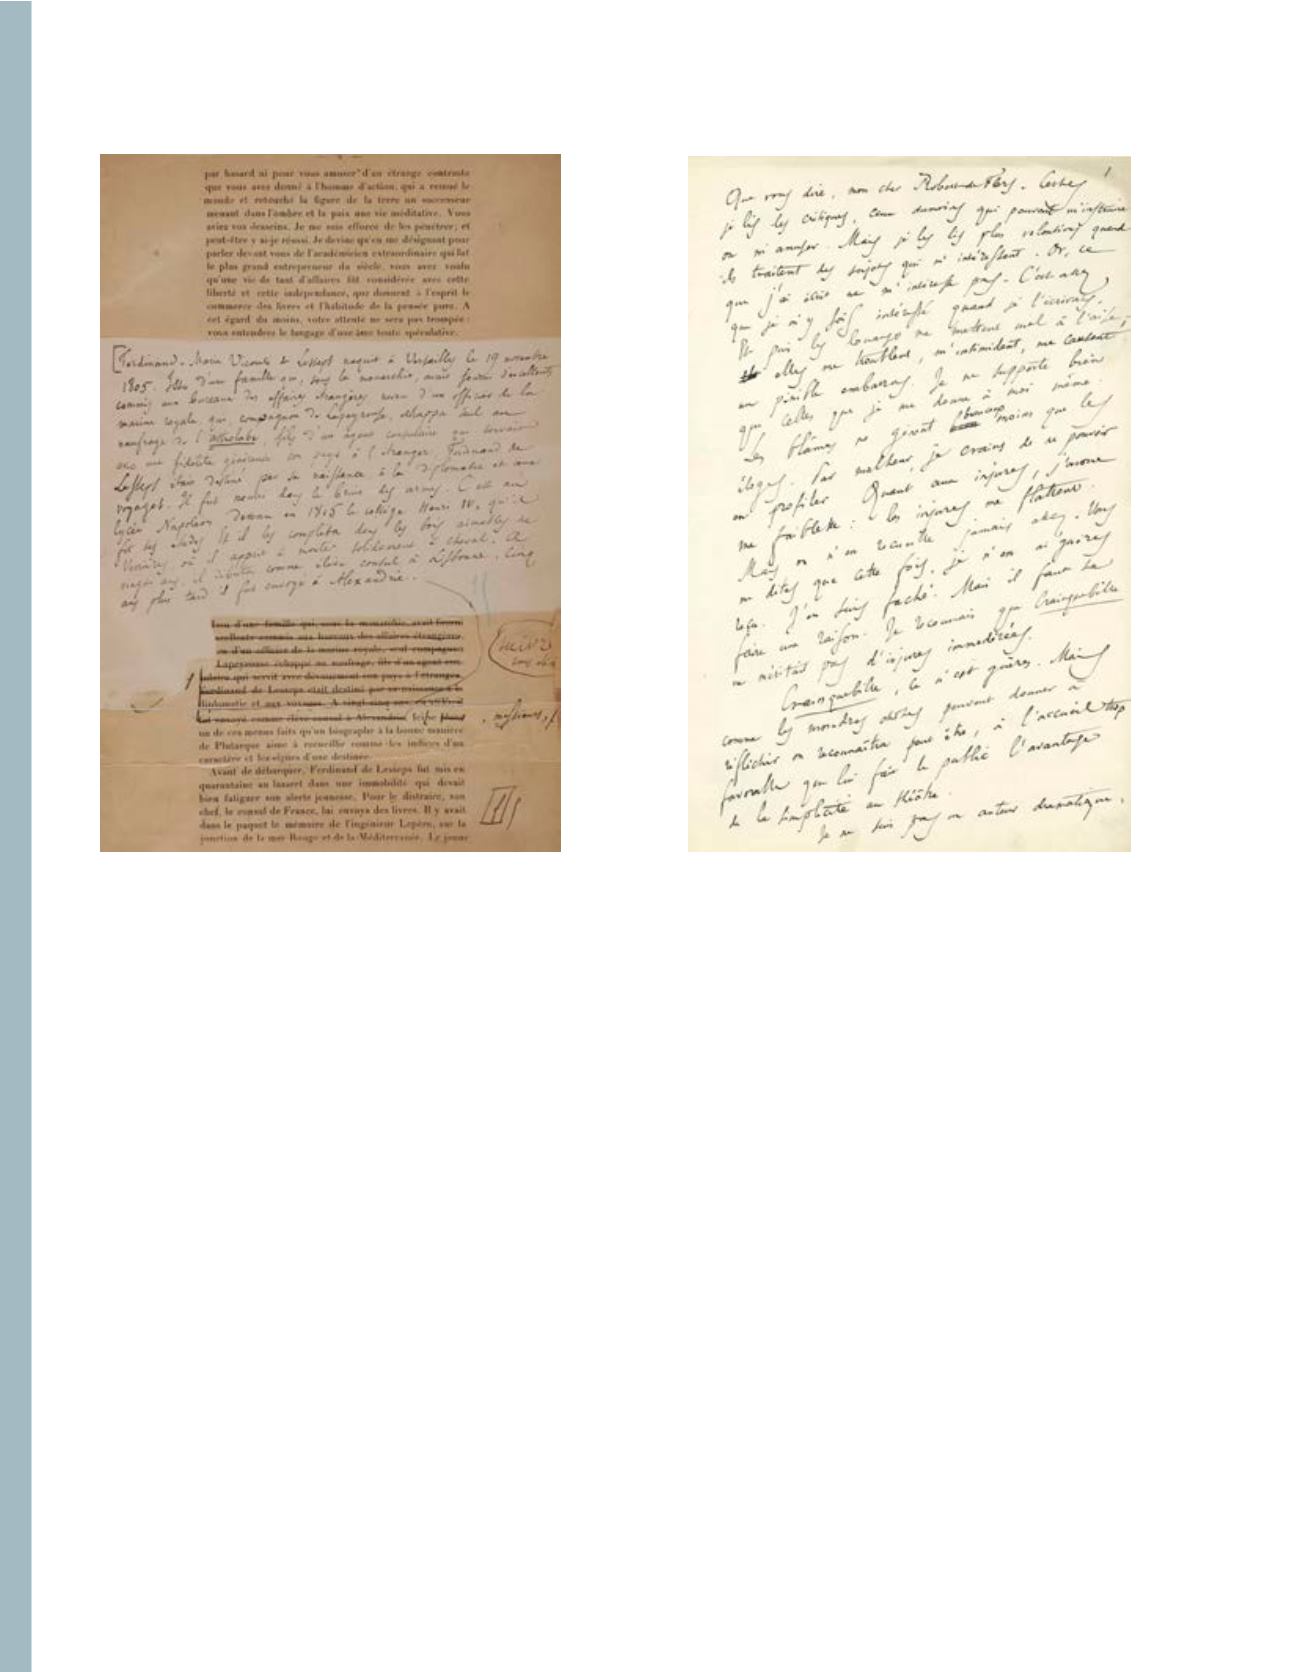 par hasard ni pour vous amuser d'un étrange contraste
que vous avez donné à l'homme d'action, qui a remué le
monde et retouché la figure de la terre un successeur
menant dans l'ombre et la paix une vie méditative. Vous
aviez vos desseins. Je me suis efforcé de les pénétrer; et
peut-être y ai-je réussi. Je devine qu'en me désignant pour
parler devant vous de l'académicien extraordinaire qui fut
le plus grand entrepreneur du siècle, vous avez voulu
qu'une vie de tant d'affaires fût considérée avec cette
liberté et cette indépendance, que donnent à l'esprit le
commerce des livres et l'habitude de la pensée pure. A
cet égard du moins, votre attente ne sera pas trompée :
vous entendrez le langage d'une âme toute spéculative.
[Ferdinand-Marie Vicomte de Lesseps naquit à Versailles le 19 novembre
1805. Issu d'une famille qui, sous la monarchie, avait fourni d'excellents
commis aux bureaux des affaires étrangères neveu d'un officier de la
marine royale, qui, compagnon de Lapeyrouse, échappa seul au
naufrage de l'astrolabe, fils d'un agent consulaire qui servait
avec une fidélité généreuse son pays à l'étranger, Ferdinand de
Lesseps était destiné par sa naissance à la diplomatie et aux
voyages. Il fut nourri dans le bruit des armes. C'est au
lycée Napoléon devenu en 1815 le collège Henri IV, qu'il
fit ses études et il les compléta dans les bois aimables de
où il apprit à monter solidement à cheval. A
vingt ans, il débuta comme élève consul à Lisbonne. Cinq
ans plus tard il fut envoyé à Alexandrie.
Issu d'une famille qui, sous la monarchie, avait fourni
excellents commis aux bureaux des affaires étrangères,
neveu d'un officier de la marine royale, seul compagnon
Lapeyrouse échappé au naufrage, fils d'un agent con-
sulaire qui servit avec dévouement son pays à l'étranger,
Ferdinand de Lesseps était destiné par sa naissance à la
diplomatie et aux voyages. A vingt-cinq ans
fut envoyé comme élève consul à Alexandrie. Ici se place , messieurs,
un de ces menus faits qu'un biographe à la bonne manière
de Plutarque aime à recueillir comme les indices d'un
caractère et les signes d'une destinée.
Avant de débarquer, Ferdinand de Lesseps fut mis en
quarantaine au lazaret dans une immobilité qui devait
bien fatiguer son alerte jeunesse. Pour le distraire, son
chef, le consul de France, lui envoya des livres. Il y avait
dans le paquet le mémoire de l'ingénieur Lepère, sur la
jonction de la mer Rouge et de la Méditerranée. Le jeune
1
Que vous dire, mon cher Robert de Flers. Certes
je lis les critiques, ceux du moins qui peuvent m'instruire
ou m'amuser. Mais je les lis plus volontiers quand
ils traitent des sujets qui m'intéressent. Or, ce
que j'ai écrit ne m'intéresse pas. C'est assez
que je m'y sois intéressé quand je l'écrivais.
Et puis les louanges me mettent mal à l'aise;
elles me troublent, m'intimident, me causent
un pénible embarras. Je ne supporte bien
que celles que je me donne à moi même.
Les blâmes me gênent beaucoup moins que les
éloges. Par malheur, je crains de ne pouvoir
en profiter. Quant aux injures, j'avoue
ma faiblesse : les injures me flattent.
Mais on n'en recueille jamais assez. Vous
me dites que cette fois, je n'en ai guères
reçu. J'en suis fâché. Mais il faut se
faire une raison. Je reconnais que Crainquebille
ne méritait pas d'injures immodérées.
Crainquebille, ce n'est guères. Mais
comme les moindres choses peuvent donner à
réfléchir on reconnaîtra peut être, à l'accueil trop
favorable que lui fait le public l'avantage
de la simplicité au théâtre.
Je ne suis pas un auteur dramatique,